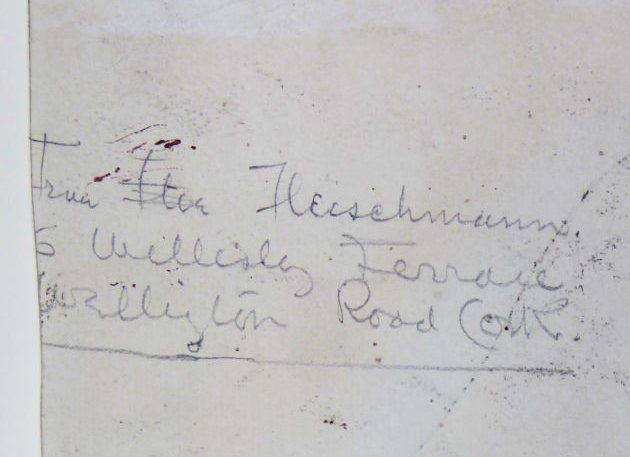 Frau Fleischmann.
6 Wellesley Terrace
Wellington Road Cork.